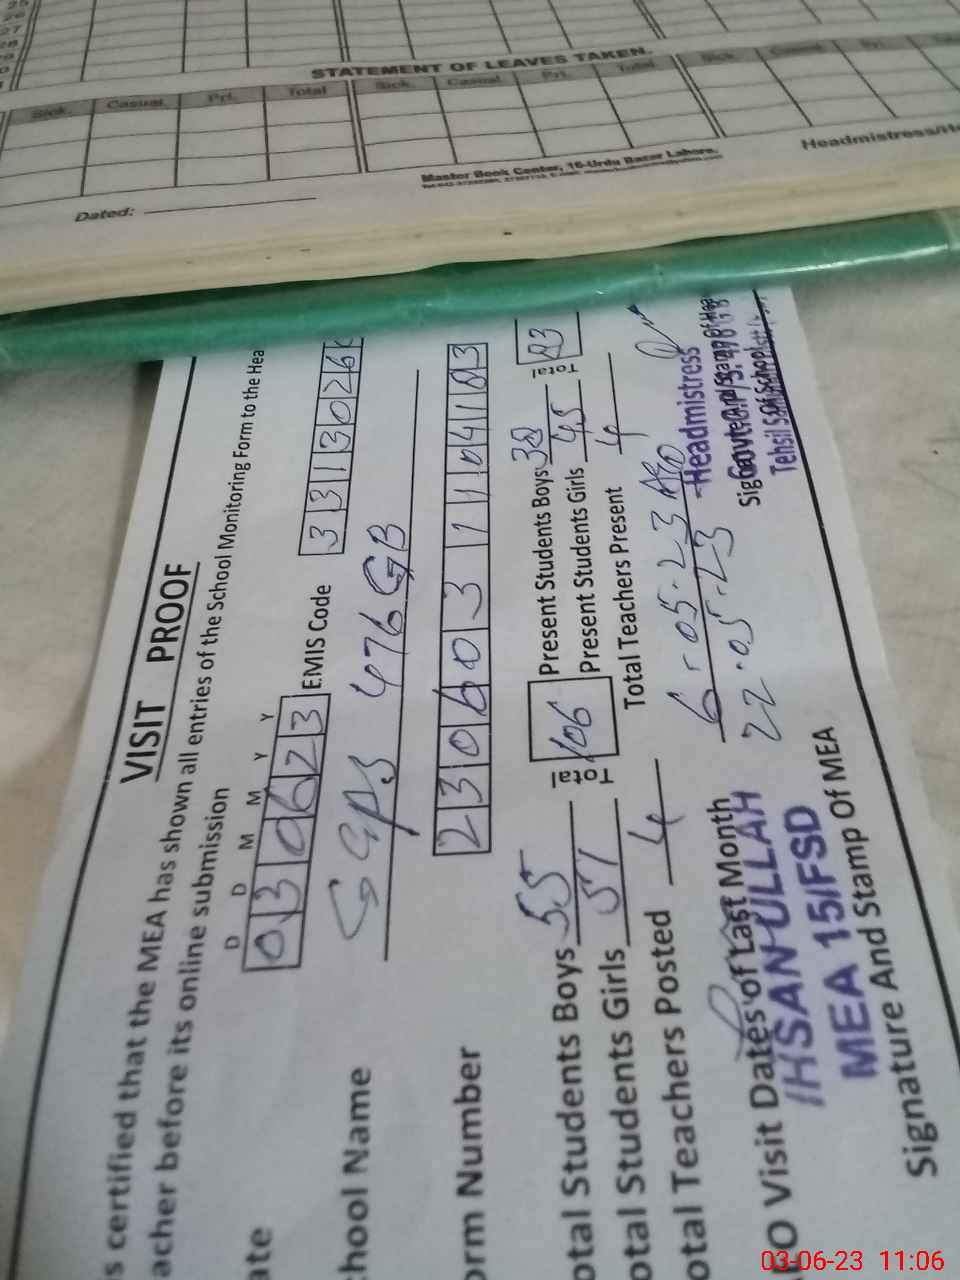 25
26
27
28
STATEMENT OF LEAVES TAKEN.
Sick. Casual Pri. Total Sick. Casual Pri. Total Sick. Casual Pri.
Master Book Center, 16-Urdu Bazar Lahore.
Dated:
Headmistress/He
VISIT PROOF
s certified that the MEA has shown all entries of the School Monitoring Form to the Hea
acher before its online submission
D D M M Y Y
ate 030623 EMIS Code 3313026
chool Name GGPS 476 GB
orm Number 230603
otal Students Boys 55 Total 106 Present Students Boys 38 Total 83
otal Students Girls 51 Present Students Girls 45
otal Teachers Posted 4 Total Teachers Present 4
O Visit Dates of Last Month 6.05.23 AEO
22.05.23
IHSAN ULLAH
MEA 15/FSD
Signature And Stamp Of MEA
Headmistress
Of School
Tehsil
03-06-23 11:06